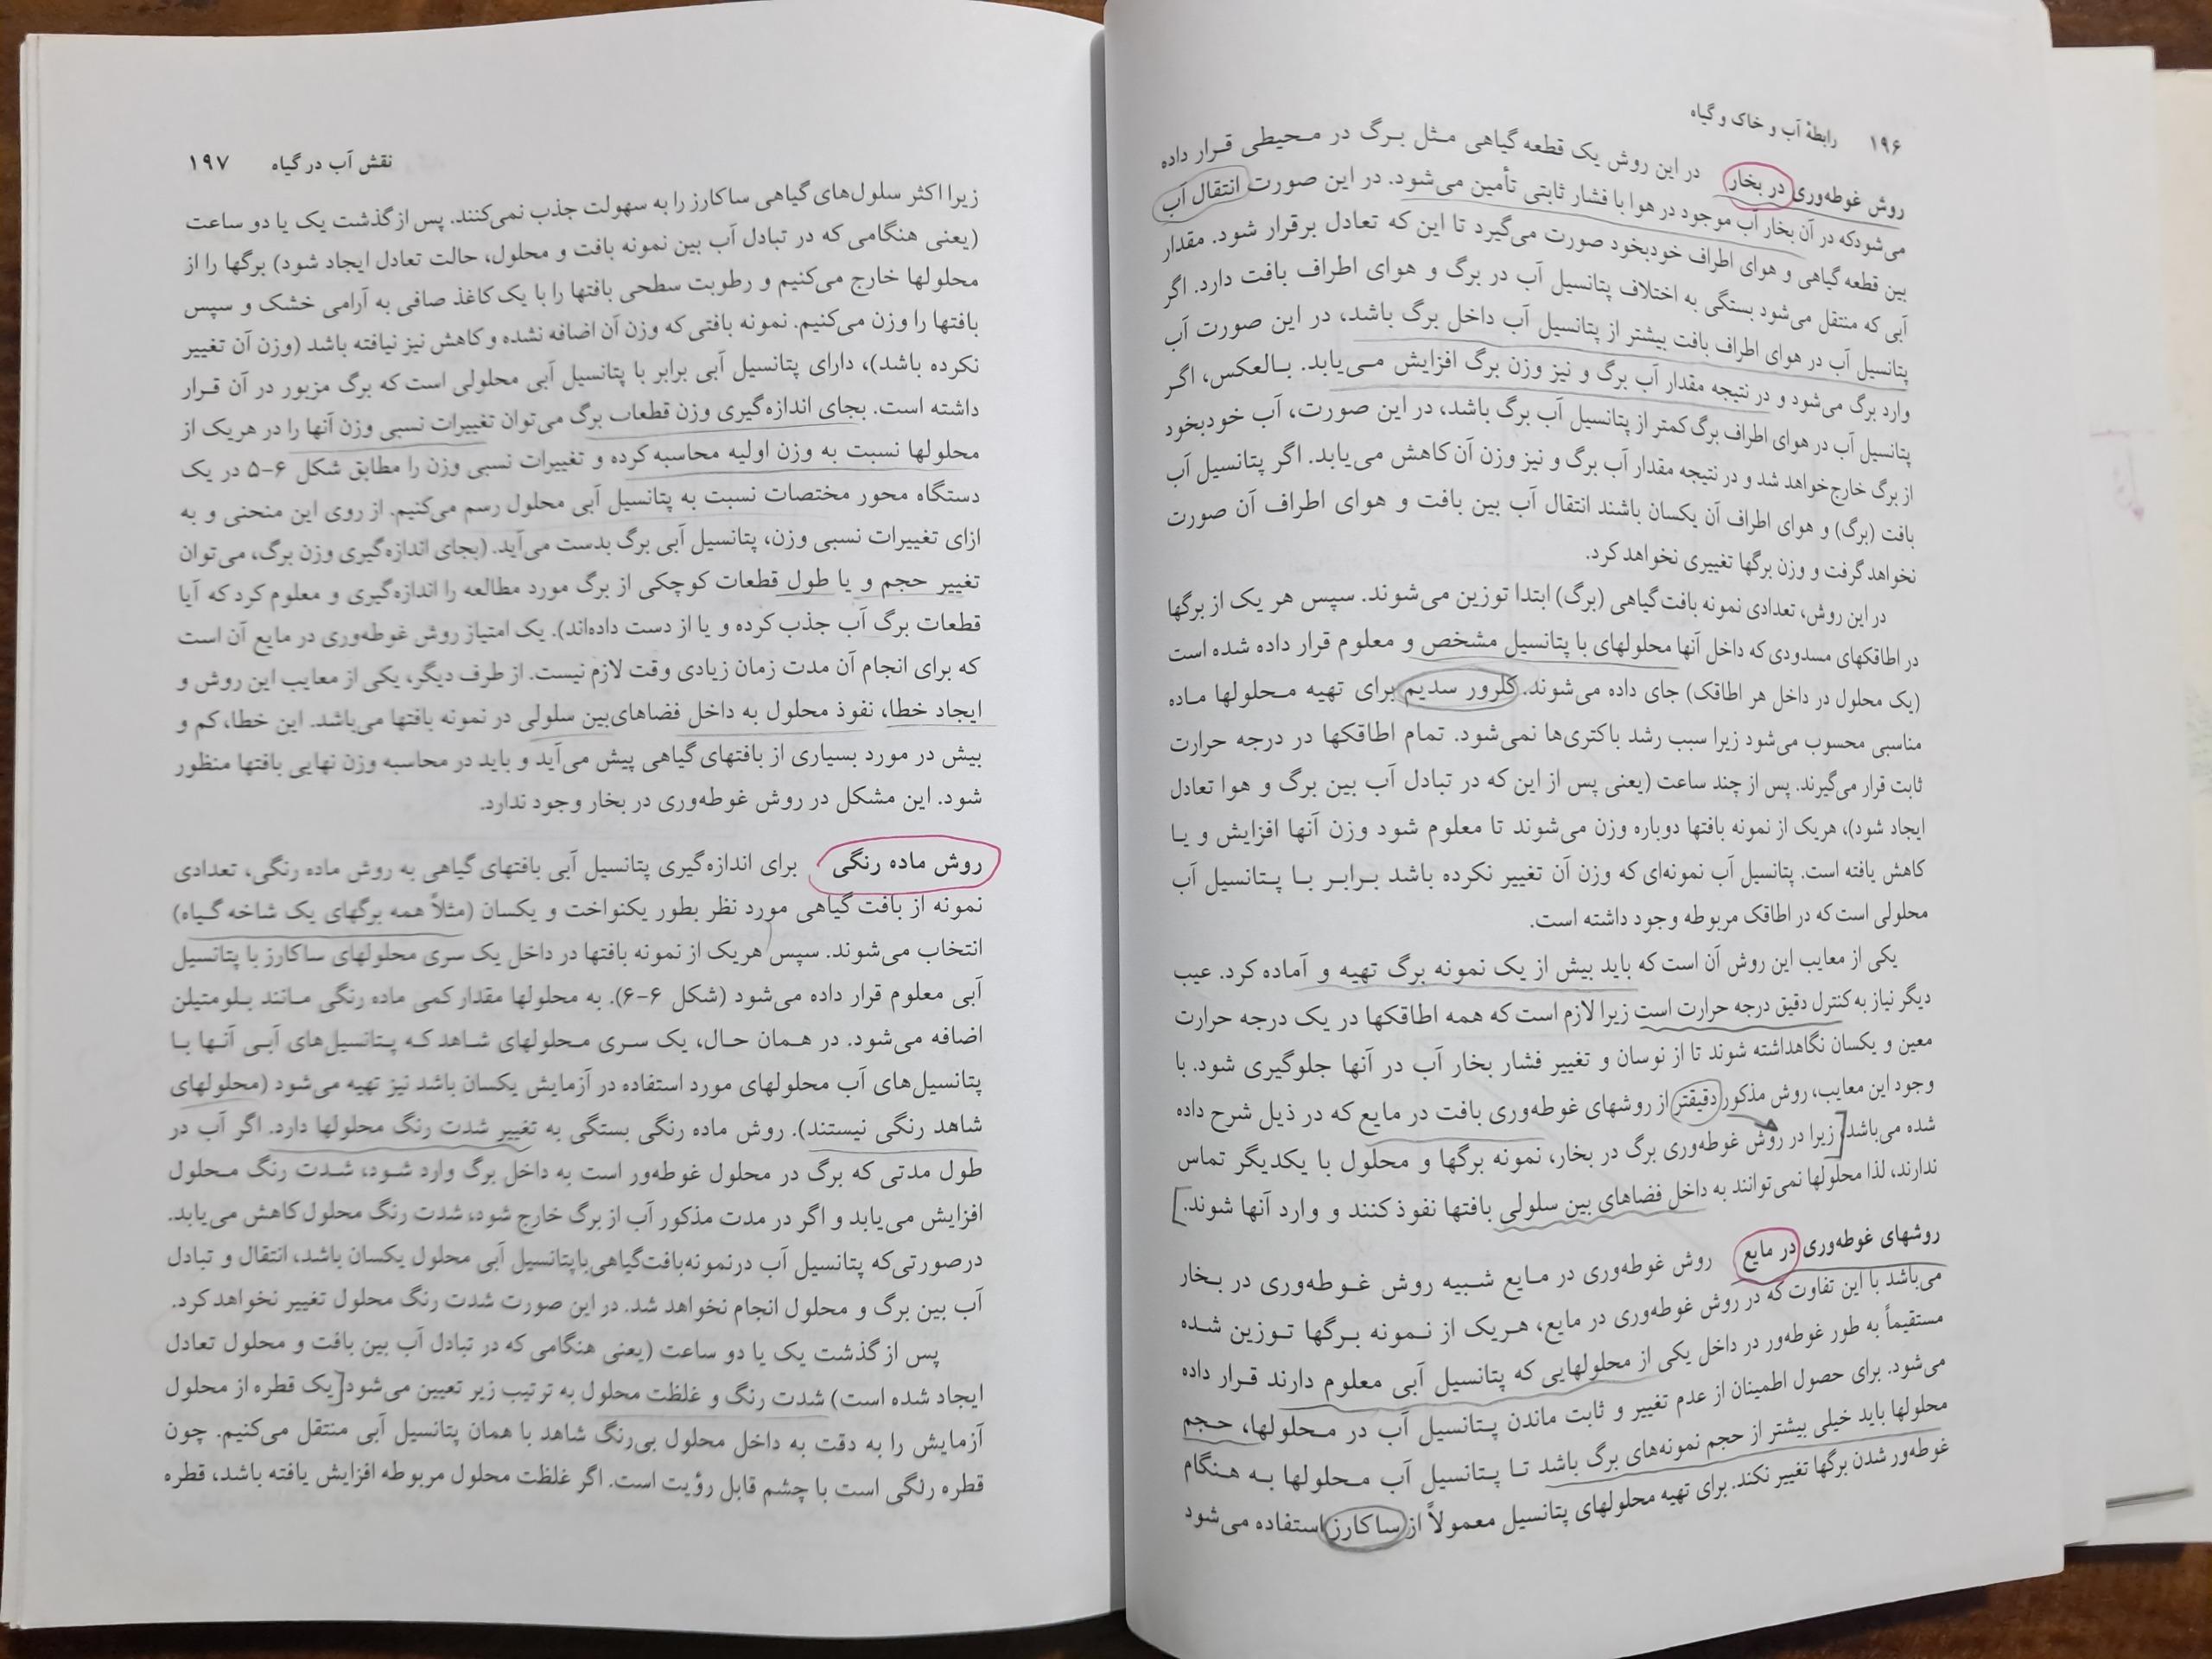 ۱۹۶ رابطهٔ آب و خاک و گیاه
روش غوطه‌وری در بخار در این روش یک قطعه گیاهی مثل برگ در محیطی قرار داده
می‌شودکه در آن بخار آب موجود در هوا با فشار ثابتی تأمین می‌شود. در این صورت انتقال آب
بین قطعه گیاهی و هوای اطراف خودبخود صورت می‌گیرد تا این که تعادل برقرار شود. مقدار
آبی که منتقل می‌شود بستگی به اختلاف پتانسیل آب در برگ و هوای اطراف بافت دارد. اگر
پتانسیل آب در هوای اطراف بافت بیشتر از پتانسیل آب داخل برگ باشد، در این صورت آب
وارد برگ می‌شود و در نتیجه مقدار آب برگ و نیز وزن برگ افزایش می‌یابد. بالعکس، اگر
پتانسیل آب در هوای اطراف برگ کمتر از پتانسیل آب برگ باشد، در این صورت، آب خودبخود
از برگ خارج خواهد شد و در نتیجه مقدار آب برگ و نیز وزن آن کاهش می‌یابد. اگر پتانسیل آب
بافت (برگ) و هوای اطراف آن یکسان باشند انتقال آب بین بافت و هوای اطراف آن صورت
نخواهد گرفت و وزن برگها تغییری نخواهد کرد.
در این روش، تعدادی نمونه بافت گیاهی (برگ) ابتدا توزین می‌شوند. سپس هر یک از برگها
در اطاقکهای مسدودی که داخل آنها محلولهای با پتانسیل مشخص و معلوم قرار داده شده است
(یک محلول در داخل هر اطاقک) جای داده می‌شوند. کلرور سدیم برای تهیه محلولها ماده
مناسبی محسوب می‌شود زیرا سبب رشد باکتری‌ها نمی‌شود. تمام اطاقکها در درجه حرارت
ثابت قرار می‌گیرند. پس از چند ساعت (یعنی پس از این که در تبادل آب بین برگ و هوا تعادل
ایجاد شود)، هریک از نمونه بافتها دوباره وزن می‌شوند تا معلوم شود وزن آنها افزایش و یا
کاهش یافته است. پتانسیل آب نمونه‌ای که وزن آن تغییر نکرده باشد برابر با پتانسیل آب
محلولی است که در اطاقک مربوطه وجود داشته است.
یکی از معایب این روش آن است که باید بیش از یک نمونه برگ تهیه و آماده کرد. عیب
دیگر نیاز به کنترل دقیق درجه حرارت است زیرا لازم است که همه اطاقکها در یک درجه حرارت
معین و یکسان نگاهداشته شوند تا از نوسان و تغییر فشار بخار آب در آنها جلوگیری شود. با
وجود این معایب، روش مذکور دقیقتر از روشهای غوطه‌وری بافت در مایع که در ذیل شرح داده
شده می‌باشد [زیرا در روش غوطه‌وری برگ در بخار، نمونه برگها و محلول با یکدیگر تماس
ندارند، لذا محلولها نمی‌توانند به داخل فضاهای بین سلولی بافتها نفوذ کنند و وارد آنها شوند.]
روشهای غوطه‌وری در مایع روش غوطه‌وری در مایع شبیه روش غوطه‌وری در بخار
می‌باشد با این تفاوت که در روش غوطه‌وری در مایع، هریک از نمونه برگها توزین شده
مستقیماً به طور غوطه‌ور در داخل یکی از محلولهایی که پتانسیل آبی معلوم دارند قرار داده
می‌شود. برای حصول اطمینان از عدم تغییر و ثابت ماندن پتانسیل آب در محلولها، حجم
محلولها باید خیلی بیشتر از حجم نمونه‌های برگ باشد تا پتانسیل آب محلولها به هنگام
غوطه‌ور شدن برگها تغییر نکند. برای تهیه محلولهای پتانسیل معمولاً از ساکارز استفاده می‌شود
نقش آب در گیاه ۱۹۷
زیرا اکثر سلول‌های گیاهی ساکارز را به سهولت جذب نمی‌کنند. پس از گذشت یک یا دو ساعت
(یعنی هنگامی که در تبادل آب بین نمونه بافت و محلول، حالت تعادل ایجاد شود) برگها را از
محلولها خارج می‌کنیم و رطوبت سطحی بافتها را با یک کاغذ صافی به آرامی خشک و سپس
بافتها را وزن می‌کنیم. نمونه بافتی که وزن آن اضافه نشده و کاهش نیز نیافته باشد (وزن آن تغییر
نکرده باشد)، دارای پتانسیل آبی برابر با پتانسیل آبی محلولی است که برگ مزبور در آن قرار
داشته است. بجای اندازه‌گیری وزن قطعات برگ می‌توان تغییرات نسبی وزن آنها را در هریک از
محلولها نسبت به وزن اولیه محاسبه کرده و تغییرات نسبی وزن را مطابق شکل ۶-۵ در یک
دستگاه محور مختصات نسبت به پتانسیل آبی محلول رسم می‌کنیم. از روی این منحنی و به
ازای تغییرات نسبی وزن، پتانسیل آبی برگ بدست می‌آید. (بجای اندازه‌گیری وزن برگ، می‌توان
تغییر حجم و یا طول قطعات کوچکی از برگ مورد مطالعه را اندازه‌گیری و معلوم کرد که آیا
قطعات برگ آب جذب کرده و یا از دست داده‌اند). یک امتیاز روش غوطه‌وری در مایع آن است
که برای انجام آن مدت زمان زیادی وقت لازم نیست. از طرف دیگر، یکی از معایب این روش و
ایجاد خطا، نفوذ محلول به داخل فضاهای بین سلولی در نمونه بافتها می‌باشد. این خطا، کم و
بیش در مورد بسیاری از بافتهای گیاهی پیش می‌آید و باید در محاسبه وزن نهایی بافتها منظور
شود. این مشکل در روش غوطه‌وری در بخار وجود ندارد.
روش ماده رنگی برای اندازه‌گیری پتانسیل آبی بافتهای گیاهی به روش ماده رنگی، تعدادی
نمونه از بافت گیاهی مورد نظر بطور یکنواخت و یکسان (مثلاً همه برگهای یک شاخه گیاه)
انتخاب می‌شوند. سپس هریک از نمونه بافتها در داخل یک سری محلولهای ساکارز با پتانسیل
آبی معلوم قرار داده می‌شود (شکل ۶-۶). به محلولها مقدار کمی ماده رنگی مانند بلومتیلن
اضافه می‌شود. در همان حال، یک سری محلولهای شاهد که پتانسیل‌های آبی آنها با
پتانسیل‌های آب محلولهای مورد استفاده در آزمایش یکسان باشد نیز تهیه می‌شود (محلولهای
شاهد رنگی نیستند). روش ماده رنگی بستگی به تغییر شدت رنگ محلولها دارد. اگر آب در
طول مدتی که برگ در محلول غوطه‌ور است به داخل برگ وارد شود، شدت رنگ محلول
افزایش می‌یابد و اگر در مدت مذکور آب از برگ خارج شود، شدت رنگ محلول کاهش می‌یابد.
درصورتی‌که پتانسیل آب درنمونه بافت گیاهی با پتانسیل آبی محلول یکسان باشد، انتقال و تبادل
آب بین برگ و محلول انجام نخواهد شد. در این صورت شدت رنگ محلول تغییر نخواهد کرد.
پس از گذشت یک یا دو ساعت (یعنی هنگامی که در تبادل آب بین بافت و محلول تعادل
ایجاد شده است) شدت رنگ و غلظت محلول به ترتیب زیر تعیین می‌شود [یک قطره از محلول
آزمایش را به دقت به داخل محلول بی‌رنگ شاهد با همان پتانسیل آبی منتقل می‌کنیم. چون
قطره رنگی است با چشم قابل رؤیت است. اگر غلظت محلول مربوطه افزایش یافته باشد، قطره